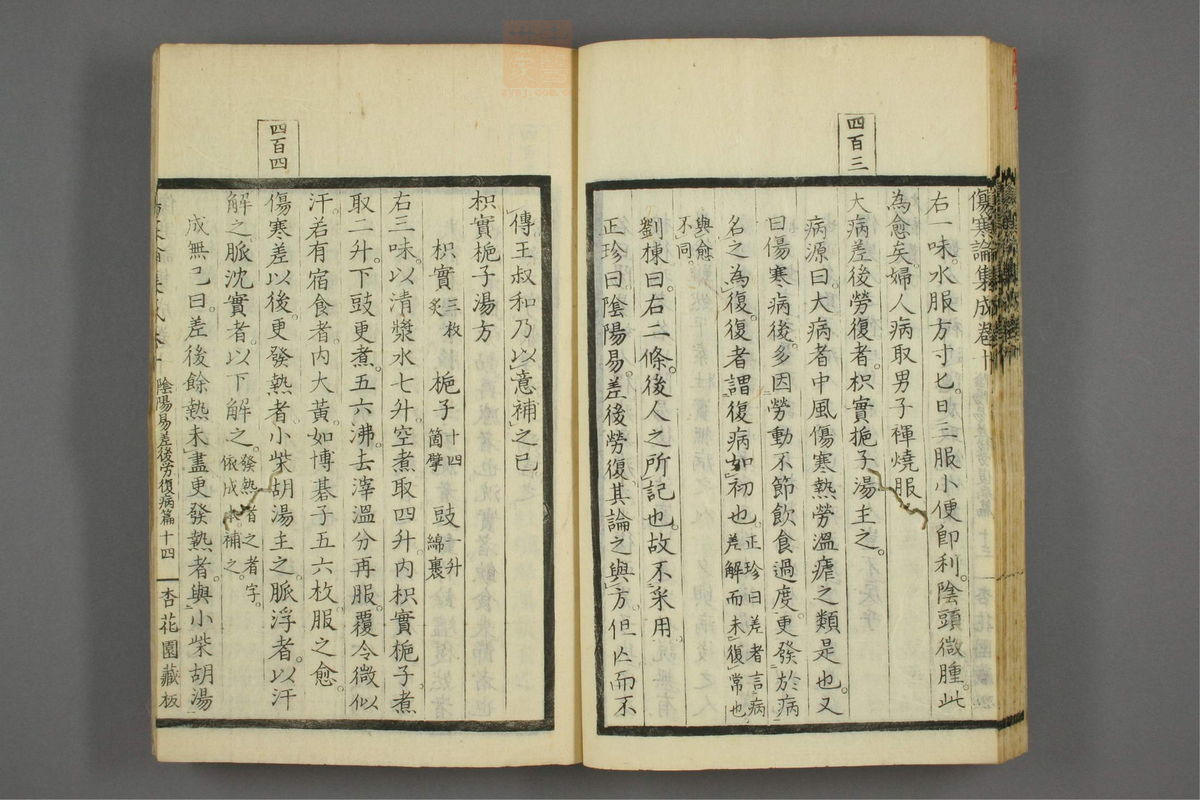 四百三
傷寒論集成卷十
右一味。水服方寸匕。日三服小便卽利。陰頭微腫。此
為愈矣。婦人病取男子褌燒服。
大病差後勞復者。枳實梔子湯主之。
病源曰。大病者中風傷寒熱勞溫瘧之類是也。又
曰傷寒病後。多因勞動不節飲食過度。更發於病
名之為復。復者謂復病如初也。正珍曰差者言病差解而未復常也
與愈不同。
劉棟曰。右二條。後人之所記也。故不采用。
正珍曰。陰陽易差後勞復。其論之與方。但仄而不
傳。王叔和乃以意補之已。
枳實梔子湯方
枳實三枚炙 梔子十四箇擘 豉一升綿裹
右三味。以清漿水七升。空煮取四升。內枳實梔子。煮
取二升。下豉更煮。五六沸。去滓溫分再服。覆令微似
汗。若有宿食者。內大黃。如博碁子五六枚。服之愈。
四百四
傷寒差以後。更發熱者。小柴胡湯主之。脈浮者。以汗
解之。脈沈實者。以下解之。發熱者之者字。依成本補之。
成無己曰。差後餘熱未盡更發熱者。與小柴胡湯
陰陽易差後勞復病篇 十四 杏花園藏板